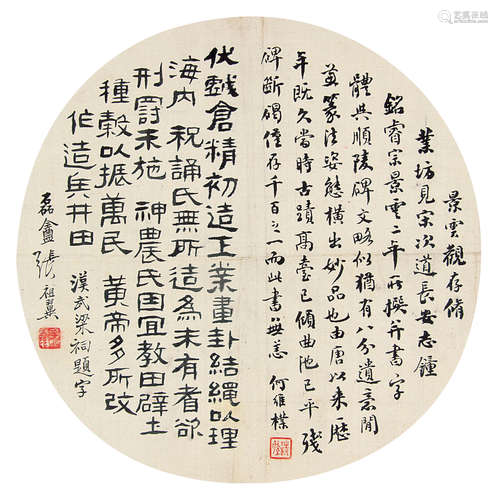 景雲觀存脩
業坊見宋次道長安志鐘
銘睿宗景雲二年所撰并書字
體與順陵碑文略似猶有八分遺意間
兼篆法姿態橫出妙品也由唐以來歷
年既久當時古蹟高臺已傾曲池已平殘
碑斷碣僅存千百之一而此書無恙 何維樸
伏戲倉精初造王業畫卦結繩以理
海內 祝誦氏無所造為未有耆欲
刑罰未施 神農氏因宜教田辟土
種穀以振萬民 黃帝多所改
作造兵井田
漢武梁祠題字
磊盦張祖翼